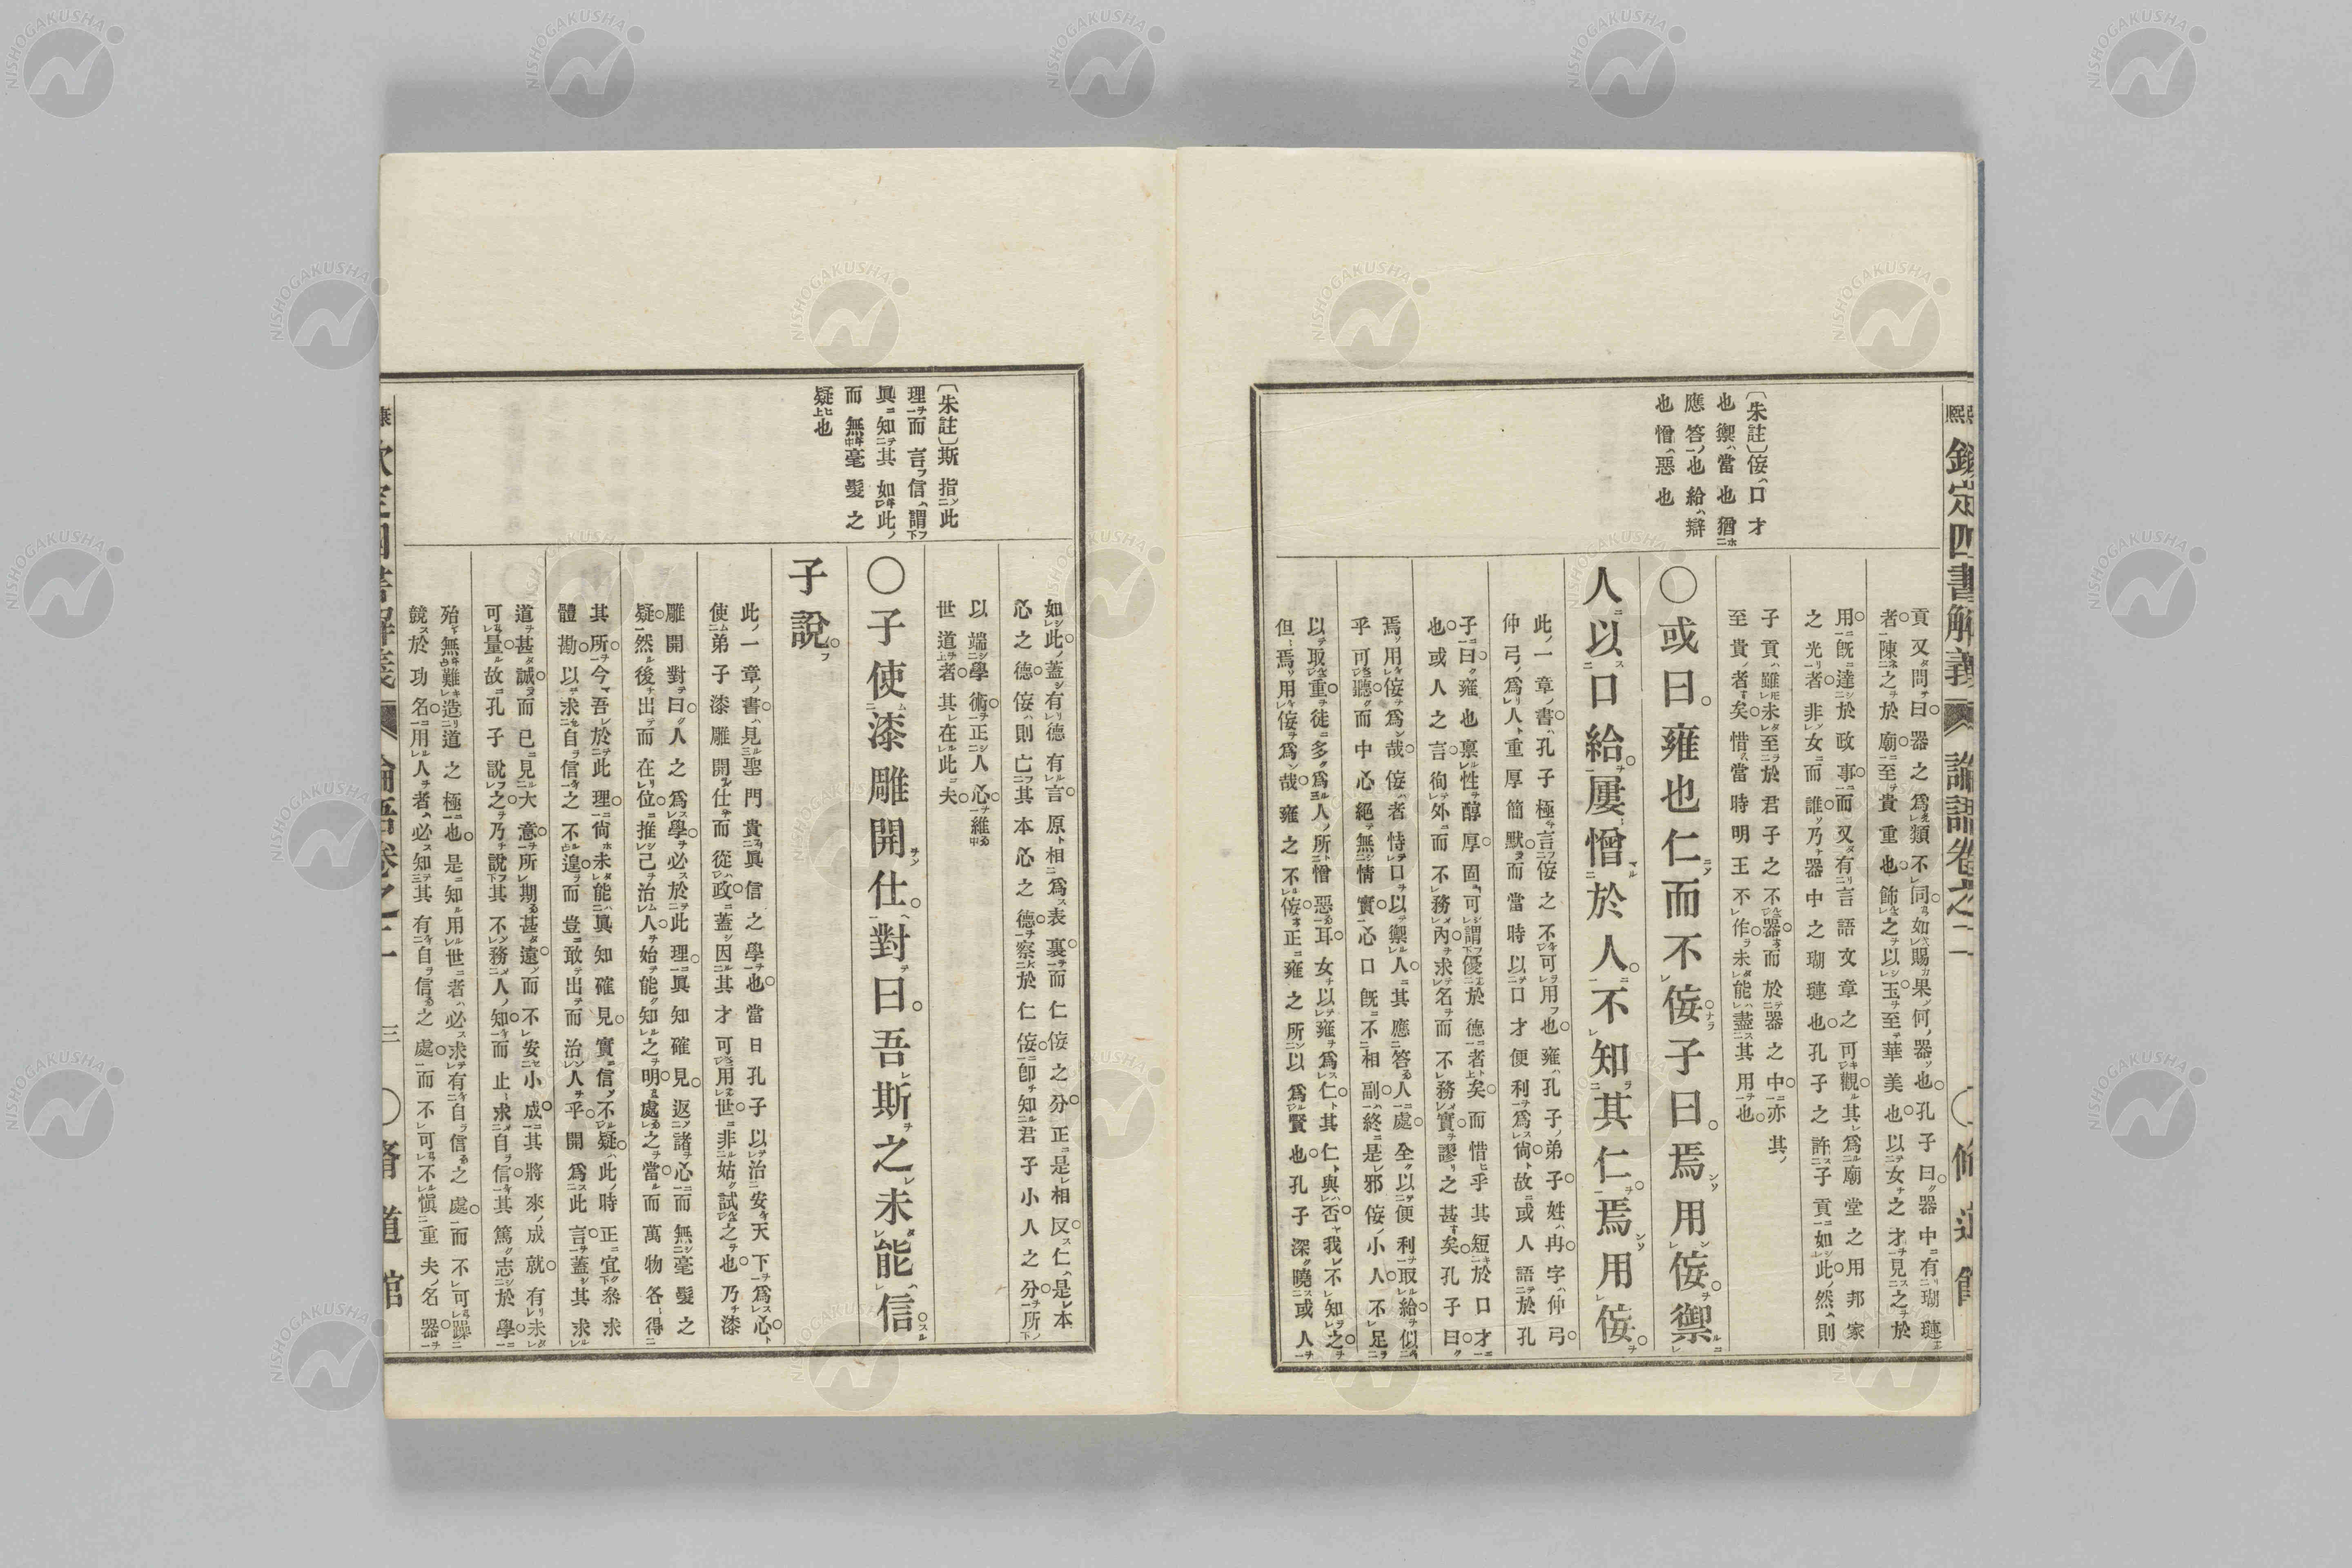 熙 鍥定四書解義 論語卷之二 〇脩道館
貢又問曰器之爲類不同如賜果何器也孔子曰器中有瑚璉
者陳之於廟至貴重也飾之以玉至華美也以女之才見之於
用旣達於政事而又有言語文章之可觀其爲廟堂之用邦家
之光者非女而誰乃器中之瑚璉也孔子之許子貢如此然則
子貢雖未至於君子之不器而於器之中亦其
至貴者矣惜當時明王不作未能盡其用也
〔朱註〕佞口才
也禦當也猶
應答也給辯
也憎惡也
〇或曰雍也仁而不佞子曰焉用佞禦
人以口給屢憎於人不知其仁焉用佞
此一章書孔子極言佞之不可用也雍孔子弟子姓冉字仲弓
仲弓爲人重厚簡默而當時以口才便利爲尙故或人語於孔
子曰雍也禀性醇厚固可謂優於德者矣而惜乎其短於口才
也或人之言徇外而不務內求名而不務實謬之甚矣孔子曰
焉用佞爲哉佞者恃口以禦人其應答人處全以便利取給似
乎可聽而中心絕無情實心口旣不相副終是邪佞小人不足
以取重徒多爲人所憎惡耳女以雍爲仁其仁與否我不知之
但焉用佞爲哉雍之不佞正雍之所以爲賢也孔子深曉或人
如此蓋有德有言原相爲表裏而仁佞之分正是相反仁是本
心之德佞則亡其本心之德察於仁佞卽知君子小人之分所
以端學術正人心維
世道者其在此夫
〔朱註〕斯指此
理而言信謂
眞知其如此
而無毫髮之
疑也
〇子使漆雕開仕對曰吾斯之未能信
子說
此一章書見聖門貴眞信之學也當日孔子以治安天下爲心
使弟子漆雕開仕而從政蓋因其才可用世非姑試之也乃漆
雕開對曰人之爲學必於此理眞知確見返諸心而無毫髮之
疑然後出而在位推己治人始能知之明處之當而萬物各得
其所今吾於此理尙未能眞知確見實信不疑此時正宜叅求
體勘以求自信之不遑而豈敢出而治人乎開爲此言蓋其求
道甚誠而已見大意所期甚遠而不安小成其將來成就有未
可量故孔子說之乃說其不務人知而止求自信其篤志於學
殆無難造道之極也是知用世者必求有自信之處而不可躁
競於功名用人者必知其有自信之處而不可不愼重夫名器